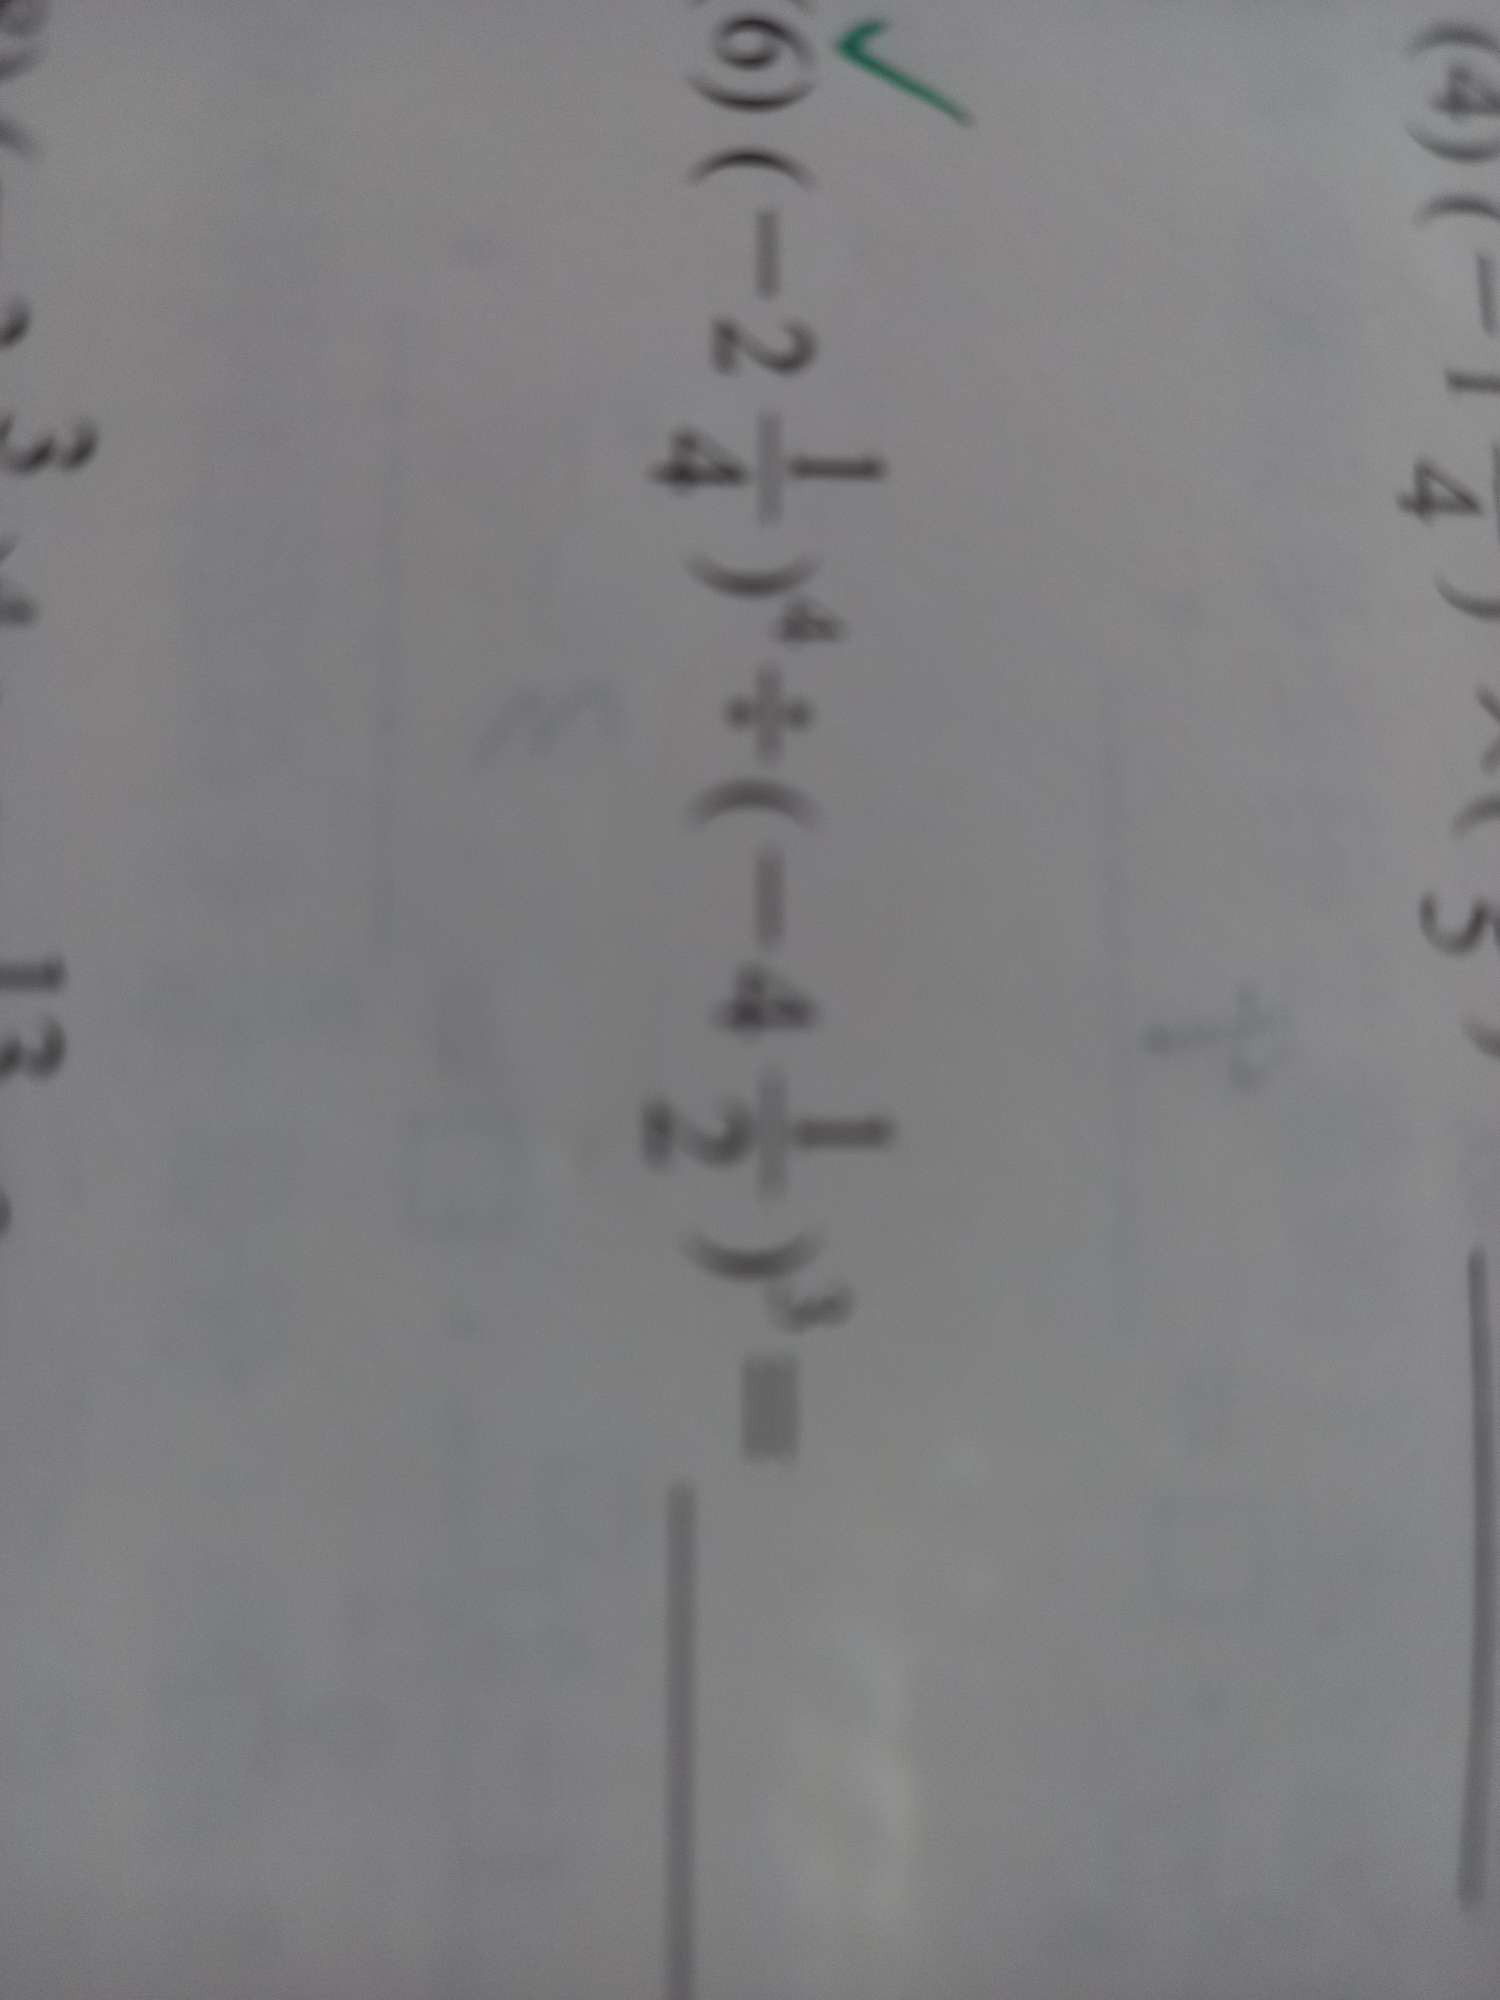 (4)(-1 /4)×( 5 )
(6)(-2 1/4)⁴÷(-4 1/2)³=
3
13